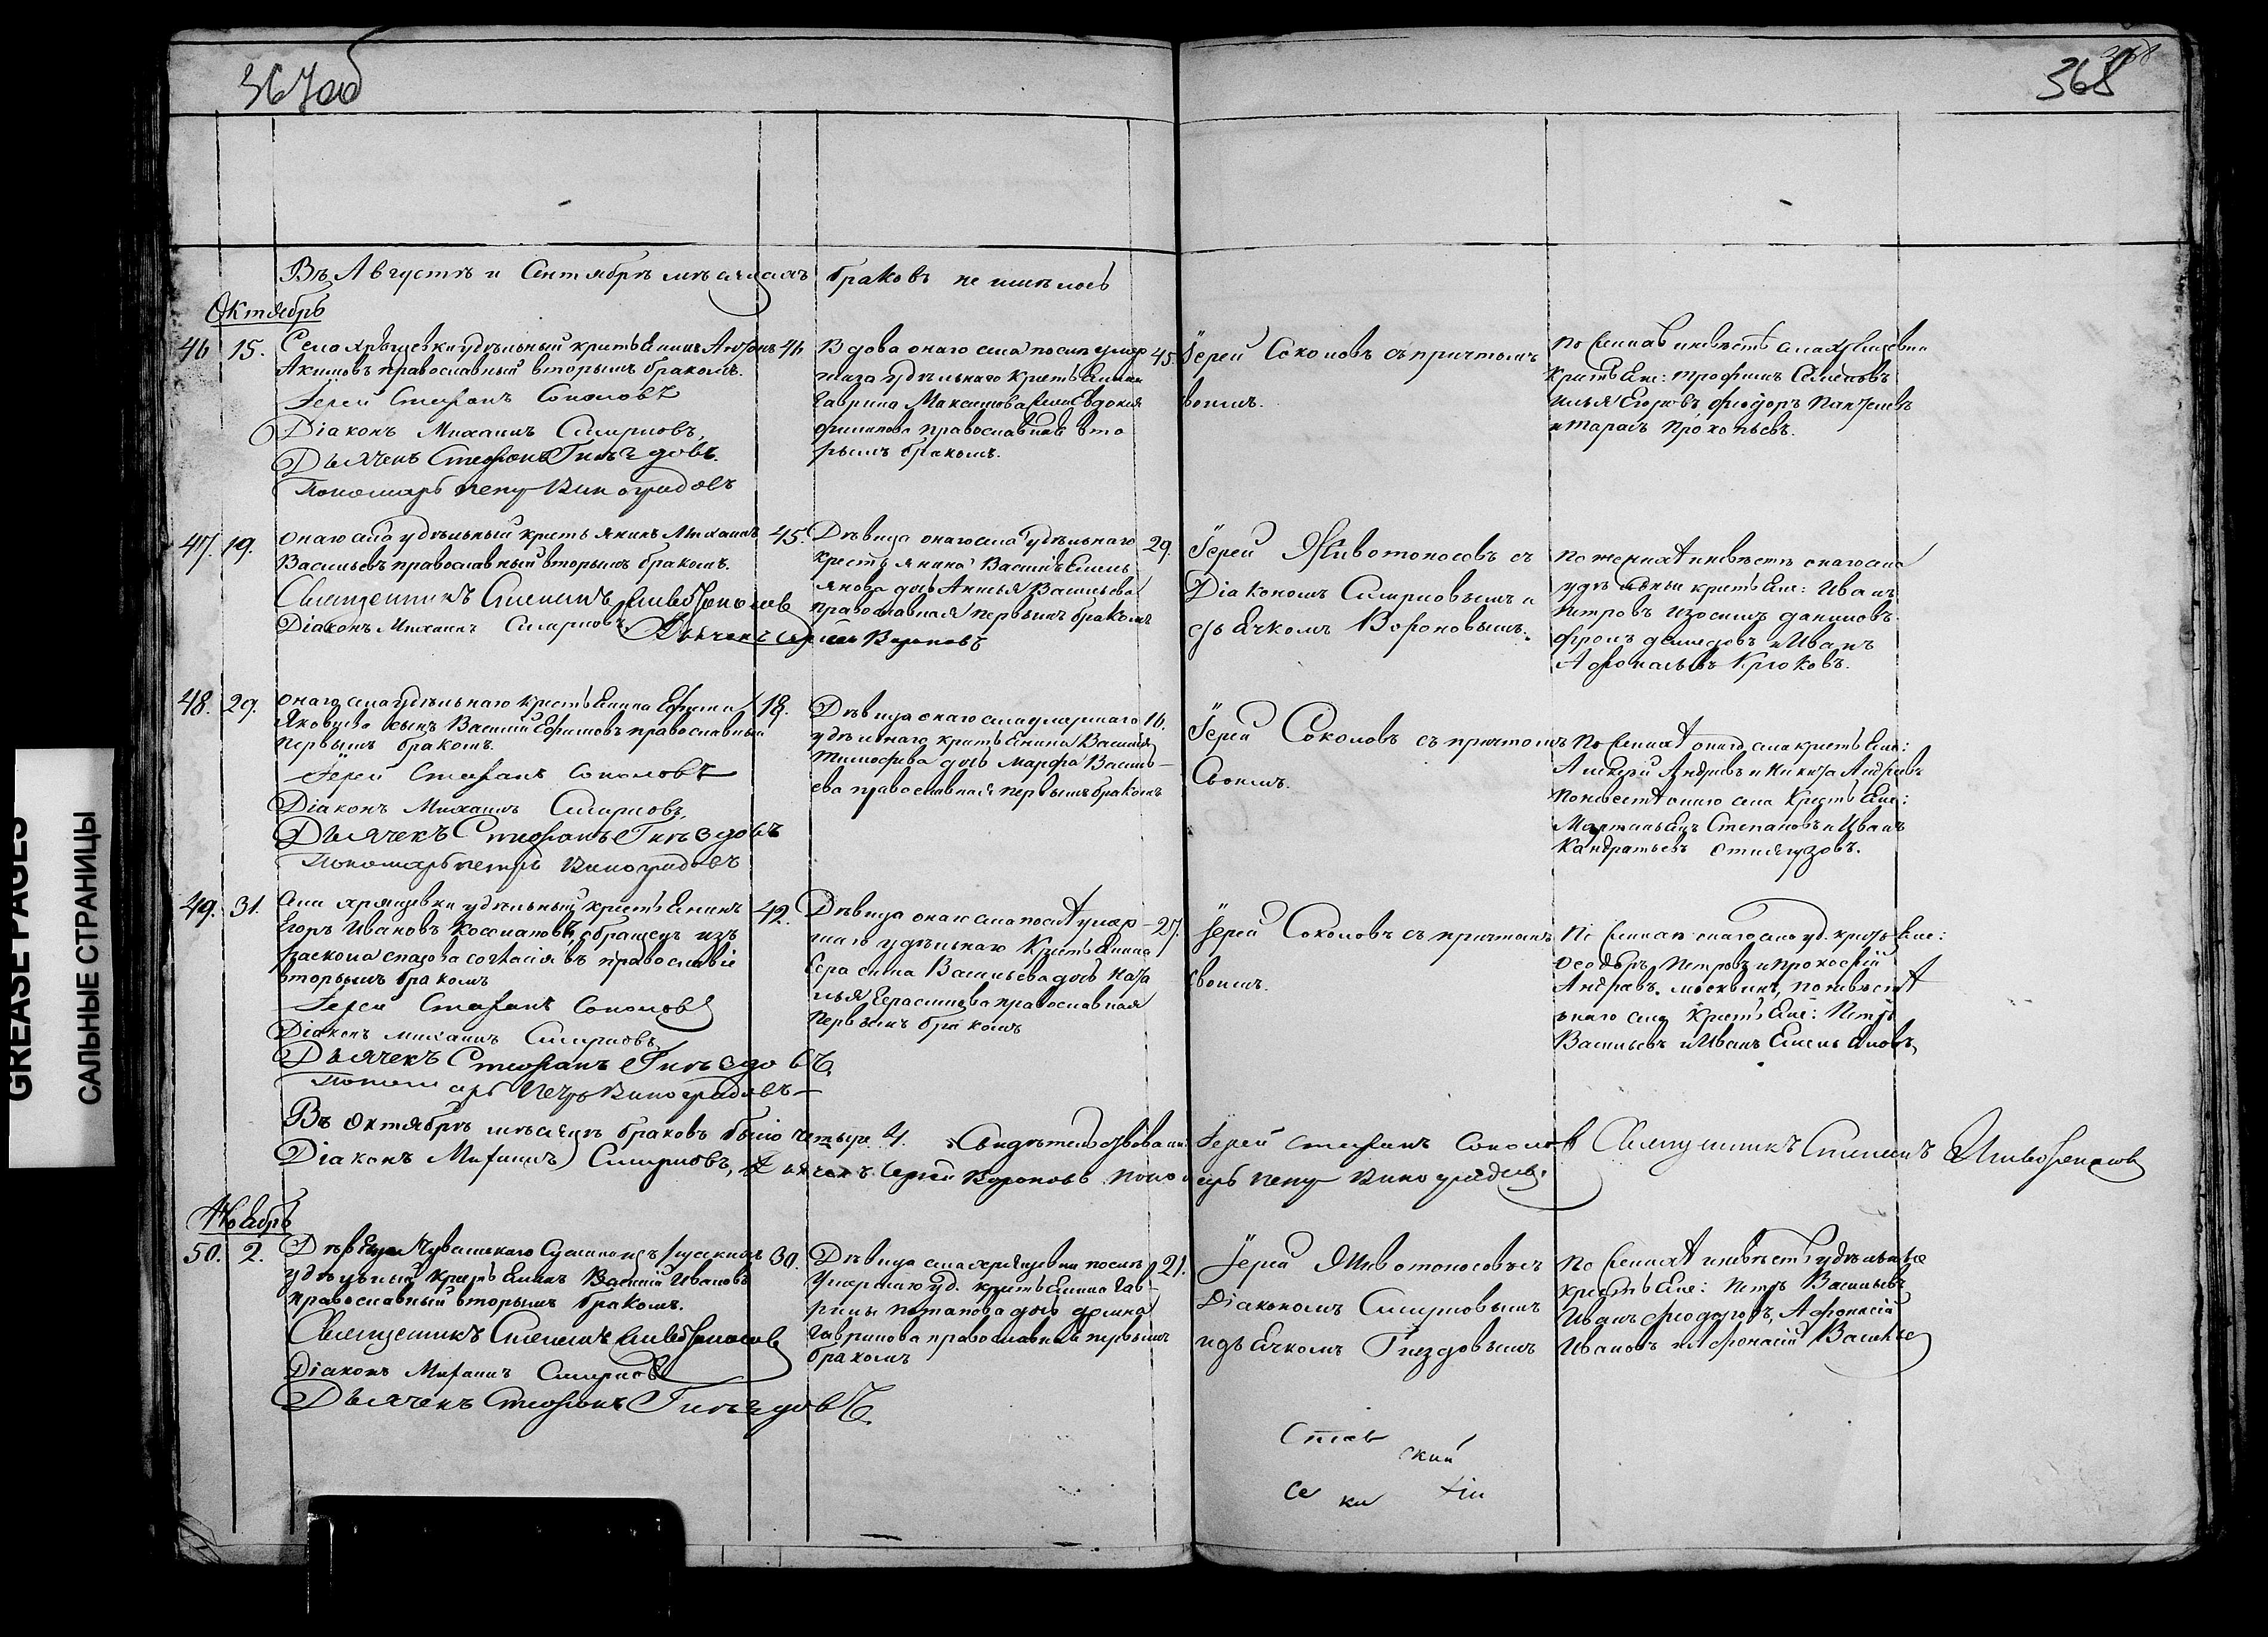 367об
368
368
GREASE PAGES
САЛЬНЫЕ СТРАНИЦЫ
Въ Августѣ и Сентябрѣ мѣсяцахъ браковъ не имѣлось
Октябрь
46 15.
Села Хрящевки удѣльный крестьянинъ
Акимовъ православный вторымъ бракомъ.
Іерей Стефанъ Соколовъ
Діаконъ Михаилъ Смирновъ,
Дьячекъ Стефанъ Гнѣздовъ.
Пономарь Петръ Виноградовъ
46
Вдова онаго села послѣ умер
шаго удѣльнаго крестьянина
Гаврила Максимова Евдокія
Филипова православная вто
рымъ бракомъ.
45.
Іерей Соколовъ съ причтомъ
своимъ.
По женихѣ и невѣстѣ села Хрящевки
крестьяне: Трофимъ Семеновъ
Илья Егоровъ, Феодоръ
и Тарасъ Прокопьевъ.
47. 19.
Онаго села удѣльный крестьянинъ Михаилъ
Васильевъ православный вторымъ бракомъ.
Священникъ Симеонъ Живоносовъ
Діаконъ Михаилъ Смирновъ, Дьячекъ Сергѣй Вороновъ
45.
Дѣвица онаго села удѣльнаго
крестьянина Василья Емель
янова дочь Васильева
православная первымъ бракомъ
29.
Іерей Животоносовъ съ
Діакономъ Смирновымъ и
дьячкомъ Вороновымъ.
По женихѣ и невѣстѣ онаго села
удѣльные крестьяне: Иванъ
Петровъ Изосимъ Даниловъ
Фролъ и Иванъ
Афонасьевъ Крюковъ.
48. 29.
Онаго села удѣльнаго крестьянина Ефима
Яковлева сынъ Василий Ефимовъ православный
первымъ бракомъ.
Іерей Стефанъ Соколовъ
Діаконъ Михаилъ Смирновъ,
Дьячекъ Стефанъ Гнѣздовъ
Пономарь Петръ Виноградовъ
18.
Дѣвица онаго села умершаго
удѣльнаго крестьянина Василья
Тимофеева дочь Марфа Василь
ева православная первымъ бракомъ
16.
Іерей Соколовъ съ причтомъ
своимъ.
По женихѣ онаго села крестьяне:
Алексѣй Андреевъ и Никита Андреевъ
По невестѣ онаго села крестьяне:
Мартиньянъ Степановъ и Иванъ
Кандратьевъ
49. 31.
Села Хрящевки удѣльный крестьянинъ
Егоръ Ивановъ Косиановъ, обращенъ изъ
раскола спасова согласія въ православіе
вторымъ бракомъ
Іерей Стефанъ Соколовъ
Діаконъ Михаилъ Смирновъ
Дьячекъ Стефанъ Гнѣздовъ.
Пономарь Петръ Виноградовъ
42.
Дѣвица онаго села послѣ умер
шаго удѣльнаго крестьянина
Герасима Васильева дочь Ната
лья Герасимова православная
первымъ бракомъ
27.
Іерей Соколовъ съ причтомъ
своимъ.
По женихѣ онаго села уд. крестьяне:
Феодоръ Петровъ и Прокофій
Андреевъ Москвинъ, по невѣстѣ
онаго села крестьяне: Петръ
Васильевъ и Иванъ Емельяновъ,
Въ Октябрѣ мѣсяцѣ браковъ было четыре 4. Свидѣтельствовали: Іерей Стефанъ Соколовъ Священникъ Симеонъ Живоносовъ
Діаконъ Михаилъ Смирновъ, Дьячекъ Сергѣй Вороновъ Пономарь Петръ Виноградовъ.
Ноябрь
50. 2.
Деревни Чувашскаго
удѣльный крестьянинъ Василій Ивановъ
православный вторымъ бракомъ.
Священникъ Симеонъ Живоносовъ
Діаконъ Михаилъ Смирновъ
Дьячекъ Стефанъ Гнѣздовъ.
30.
Дѣвица села Хрящевки послѣ
умершаго уд. крестьянина Гав
рилы Потапова дочь Домна
Гаврилова православная первымъ
бракомъ
21.
Іерей Животоносовъ съ
Діакономъ Смирновымъ
и дьячкомъ Гнездовымъ
По женихѣ и невѣстѣ удѣльные
крестьяне: Петръ Васильевъ,
Иванъ Феодоровъ, Афонасій
Ивановъ и Афонасій
Став
ский